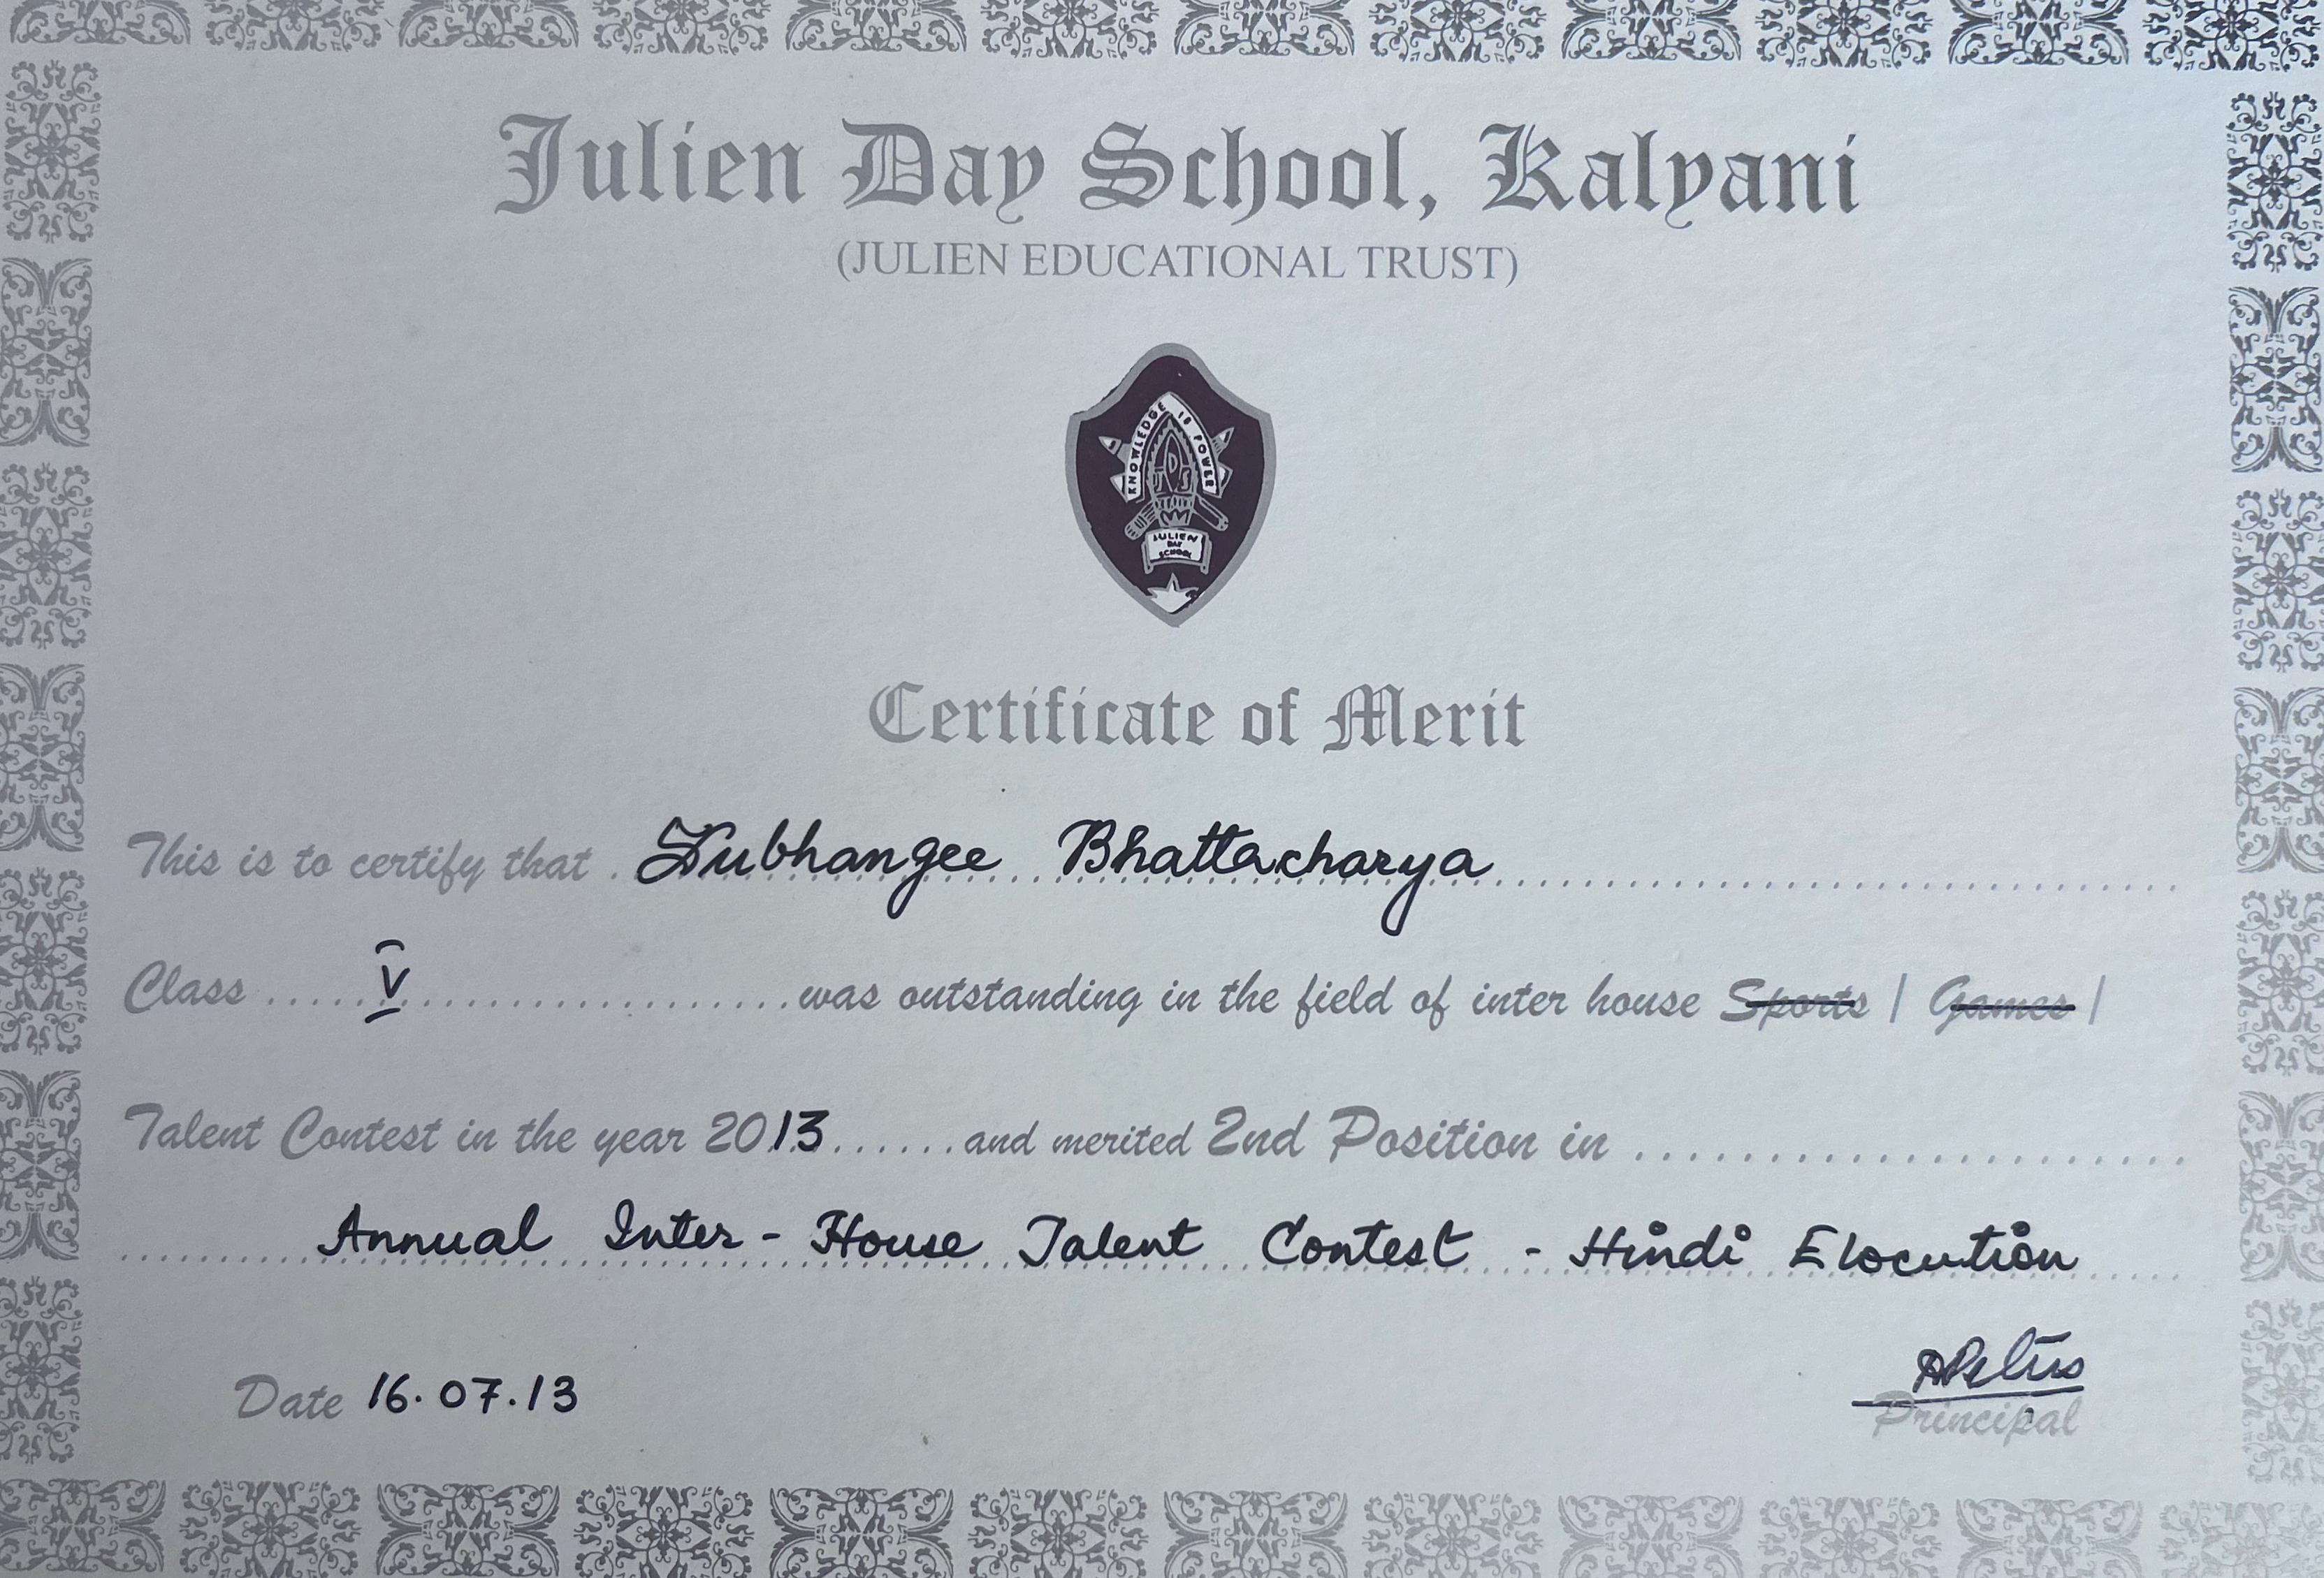 Julien Day School, Kalyani
(JULIEN EDUCATIONAL TRUST)
KNOWLEDGE IS POWER
JDS
JULIEN
DAY
SCHOOL
Certificate of Merit
This is to certify that Subhangee Bhattacharya
Class V was outstanding in the field of inter house Sports | Games |
Talent Contest in the year 2013 and merited 2nd Position in
Annual Inter - House Talent Contest - Hindi Elocution
Date 16.07.13
Principal